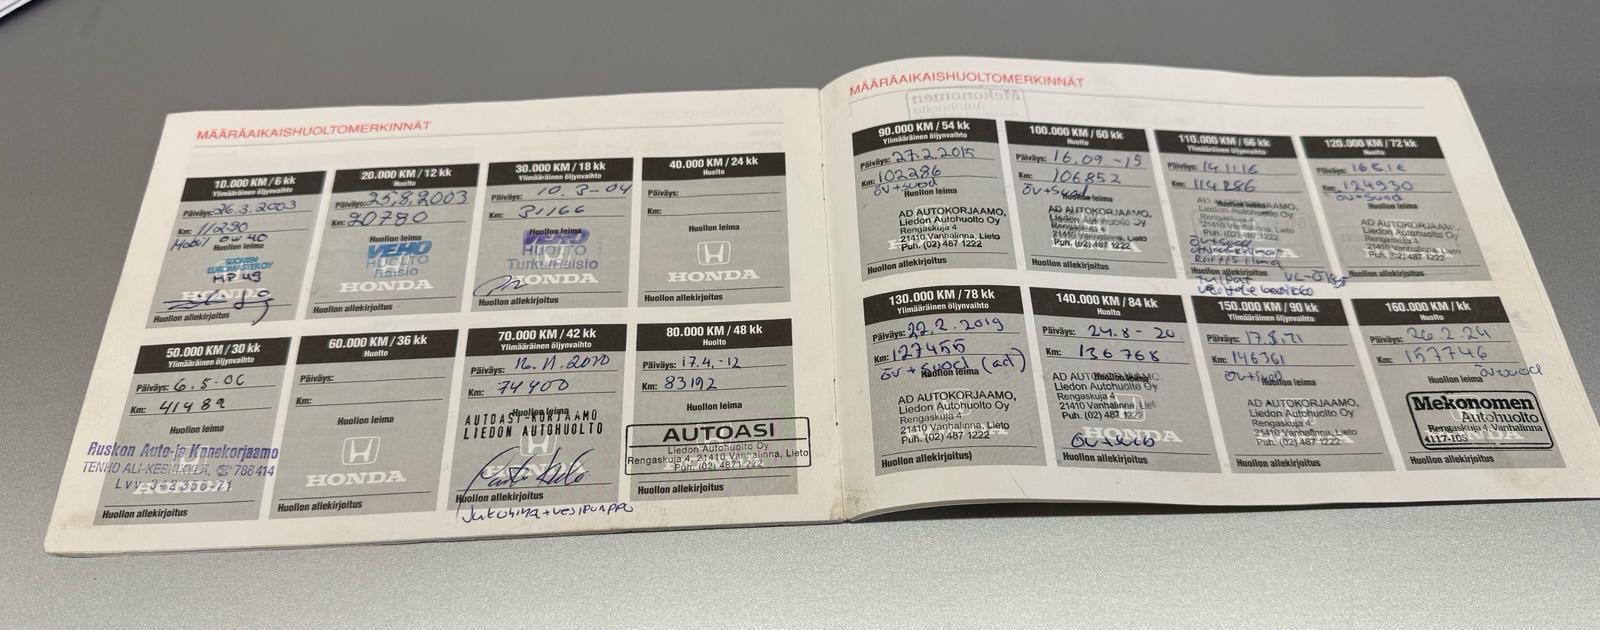 MÄÄRÄAIKAISHUOLTOMERKINNÄT
10.000 KM / 6 kk
Ylimääräinen öljynvaihto
Päiväys: 26.3.2003
Km: 11290
Mobil 0W40
Huollon leima
SUOMEN
EUROMASTER OY
HONDA
Huollon allekirjoitus
20.000 KM / 12 kk
Huolto
Päiväys: 25.8.2003
Km: 20780
Huollon leima
VEHO
HUOLTO
Raisio
HONDA
Huollon allekirjoitus
30.000 KM / 18 kk
Ylimääräinen öljynvaihto
Päiväys: 10.3-04
Km: 31166
Huollon leima
VEHO
HUOLTO
Turku/Raisio
HONDA
Huollon allekirjoitus
40.000 KM / 24 kk
Huolto
Päiväys:
Km:
Huollon leima
HONDA
Huollon allekirjoitus
50.000 KM / 30 kk
Ylimääräinen öljynvaihto
Päiväys: 6.5-06
Km: 41489
Huollon leima
Ruskon Auto-ja Konekorjaamo
HONDA
Huollon allekirjoitus
60.000 KM / 36 kk
Huolto
Päiväys:
Km:
Huollon leima
HONDA
Huollon allekirjoitus
70.000 KM / 42 kk
Ylimääräinen öljynvaihto
Päiväys: 16.11.2010
Km: 74400
Huollon leima
AUTOASI-KORJAAMO
LIEDON AUTOHUOLTO
HONDA
Huollon allekirjoitus
Jakohihna + vesipumppu
80.000 KM / 48 kk
Huolto
Päiväys: 17.4.-12
Km: 83192
Huollon leima
AUTOASI
Liedon Autohuolto Oy
Rengaskuja 4, 21410 Vanhalinna, Lieto
Puh. (02) 487 1222
Huollon allekirjoitus
MÄÄRÄAIKAISHUOLTOMERKINNÄT
90.000 KM / 54 kk
Ylimääräinen öljynvaihto
Päiväys: 27.2.2015
Km: 102286
öv+suod
Huollon leima
AD AUTOKORJAAMO,
Liedon Autohuolto Oy
Rengaskuja 4
21410 Vanhalinna, Lieto
Puh. (02) 487 1222
Huollon allekirjoitus
100.000 KM / 60 kk
Huolto
Päiväys: 16.09.-15
Km: 106852
öv+suod
Huollon leima
AD AUTOKORJAAMO,
Liedon Autohuolto Oy
Rengaskuja 4
21410 Vanhalinna, Lieto
Puh. (02) 487 1222
Huollon allekirjoitus
110.000 KM / 66 kk
Ylimääräinen öljynvaihto
Päiväys: 14.11.16
Km: 114286
Huollon leima
AD AUTOKORJAAMO,
Liedon Autohuolto Oy
Rengaskuja 4
21410 Vanhalinna, Lieto
öv+suod
Huollon allekirjoitus
120.000 KM / 72 kk
Huolto
Päiväys:
Km: 124930
öv+suod
Huollon leima
AD AUTOKORJAAMO,
Liedon Autohuolto Oy
Rengaskuja 4
21410 Vanhalinna, Lieto
Puh. (02) 487 1222
Huollon allekirjoitus
130.000 KM / 78 kk
Ylimääräinen öljynvaihto
Päiväys: 22.2.2019
Km: 127455
öv + suod (ad)
Huollon leima
AD AUTOKORJAAMO,
Liedon Autohuolto Oy
Rengaskuja 4
21410 Vanhalinna, Lieto
Puh. (02) 487 1222
Huollon allekirjoitus
140.000 KM / 84 kk
Huolto
Päiväys: 24.8-20
Km: 136768
Huollon leima
AD AUTOKORJAAMO
Liedon Autohuolto Oy
Rengaskuja 4
21410 Vanhalinna, Lieto
Puh. (02) 487 1222
HONDA
Huollon allekirjoitus
150.000 KM / 90 kk
Ylimääräinen öljynvaihto
Päiväys: 17.8.21
Km: 146361
öv+suod
Huollon leima
AD AUTOKORJAAMO,
Liedon Autohuolto Oy
Rengaskuja 4
21410 Vanhalinna, Lieto
Puh. (02) 487 1222
Huollon allekirjoitus
160.000 KM / 96 kk
Huolto
Päiväys: 26.2.24
Km: 157746
öv+suod
Huollon leima
Mekonomen
Autohuolto
Rengaskuja 4, Vanhalinna
4117-105
Huollon allekirjoitus